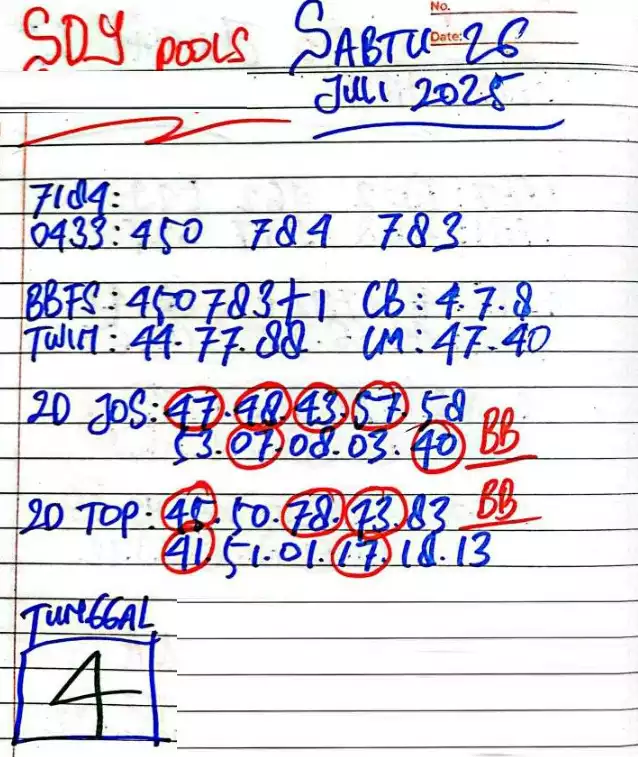 No.
Date:
SDY POOLS SABTU 26
JULI 2025
7184:
0433: 450 784 783
BBFS: 450783+1 CB: 4.7.8
TWIN: 44.77.88 CM: 47.40
2D JOS: 47.48.43.57.58
53.07.08.03.40 BB
2D TOP: 45.50.78.73.83 BB
41.51.01.17.18.13
TUNGGAL
4